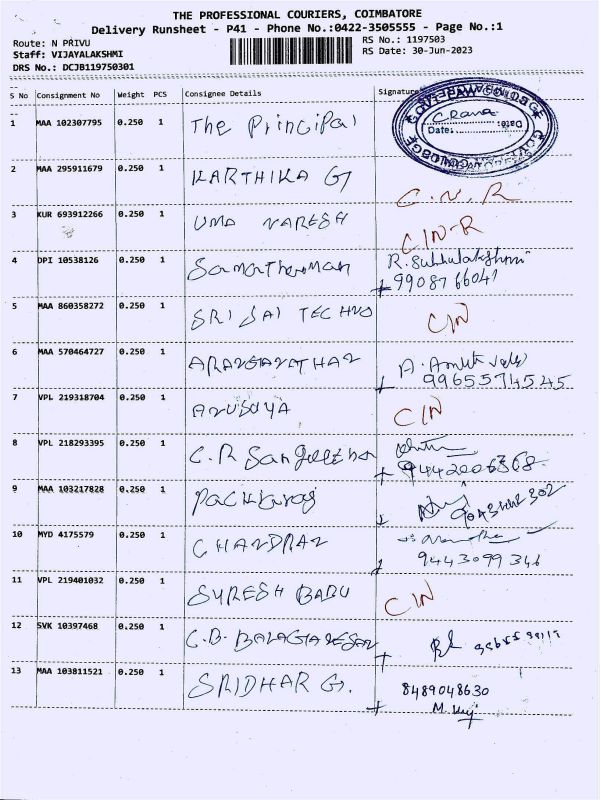 THE PROFESSIONAL COURIERS, COIMBATORE
Delivery Runsheet - P41 - Phone No.:0422-3505555 - Page No.:1
Route: N PRIVU
RS No.: 1197503
Staff: VIJAYALAKSHMI
RS Date: 30-Jun-2023
DRS No.: DCJB119750301
S No Consignment No Weight PCS Consignee Details Signature
1 MAA 102307795 0.250 1 The Principal
Date:
2 MAA 295911679 0.250 1 KARTHIKA G C.N.R
3 KUR 693912266 0.250 1 UMA NARESH CIN-R
4 DPI 10538126 0.250 1 R. Subbulakshmi
9908766041
5 MAA 860358272 0.250 1 SRI SAI TECHNO CIN
6 MAA 570464727 0.250 1 ARANGANATHAN A.
9965574545
7 VPL 219318704 0.250 1 ANUSUYA CIN
8 VPL 218293395 0.250 1 C.R Sangeetha
9442006368
9 MAA 103217828 0.250 1
10 MYD 4175579 0.250 1 CHANDRAN
9443099346
11 VPL 219401032 0.250 1 SURESH BABU CIN
12 SVK 10397468 0.250 1 C.B.
13 MAA 103811521 0.250 1 SRIDHAR G. 8489048630
M.